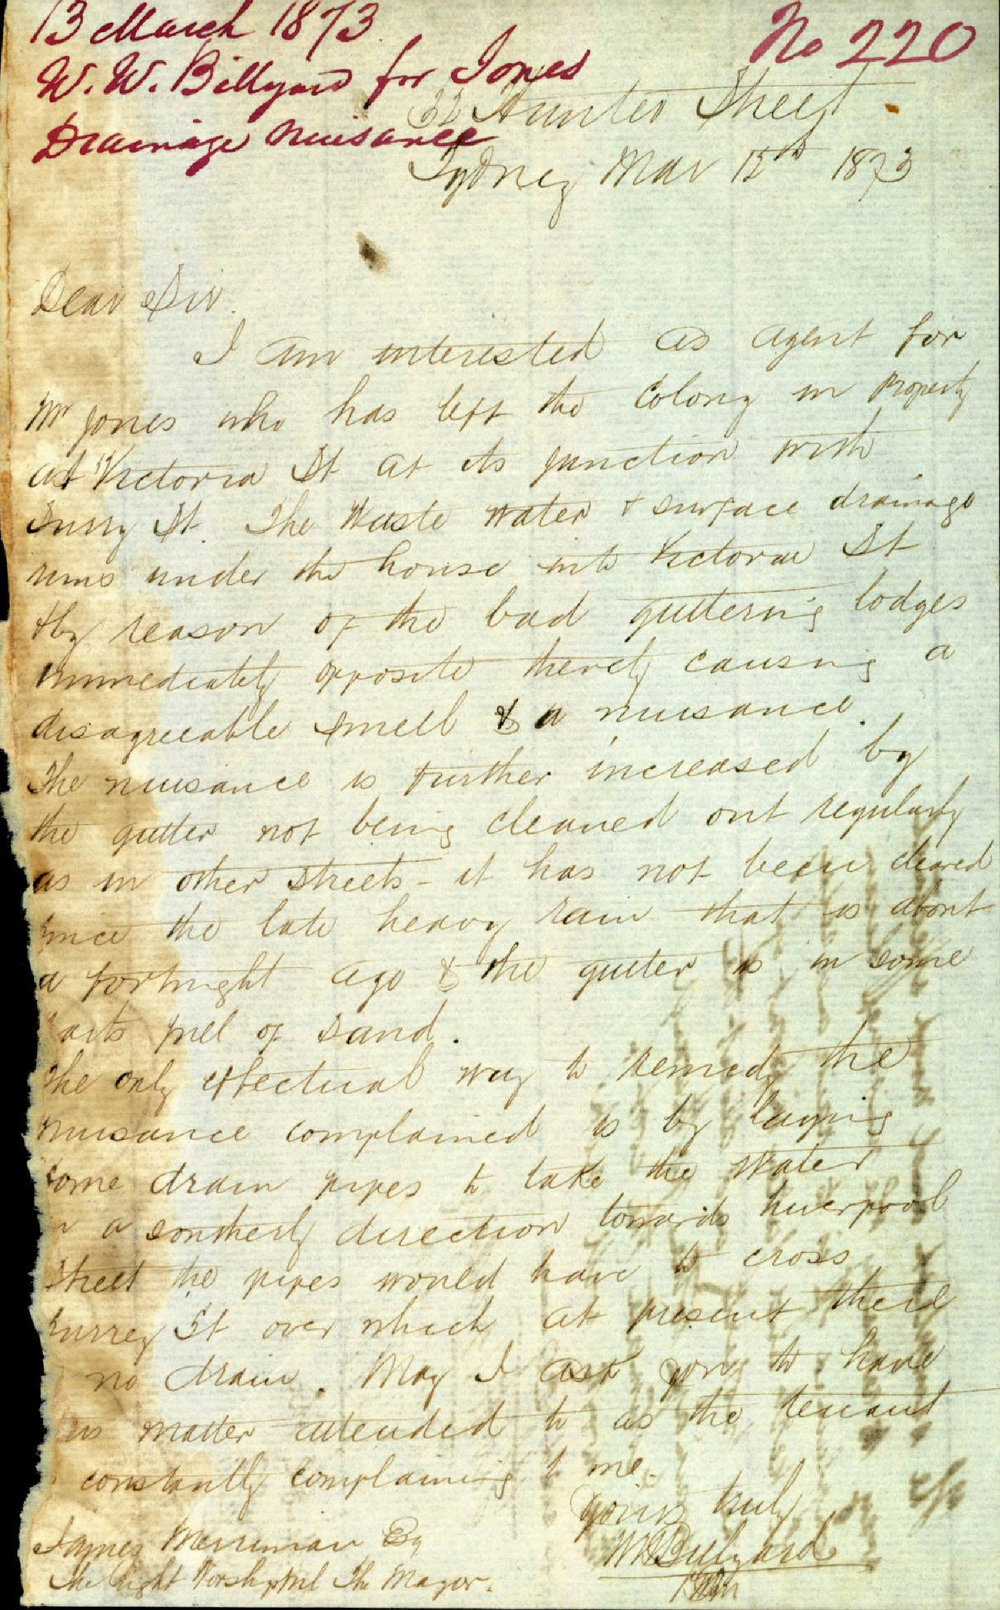 13 March 1873
No 220
W. W. Billyard for Jones
Drainage nuisance
Hunter Street
Sydney Mar 12th 1873
Dear Sir.
I am interested as agent for
Mr Jones who has left the Colony in property
at Victoria St at its junction with
Surry St. The Waste water & surface drainage
runs under the house into Victoria St
& by reason of the bad guttering lodges
immediately opposite thereby causing a
disagreeable smell & a nuisance.
The nuisance is further increased by
the gutter not being cleaned out regularly
as in other streets - it has not been cleared
since the late heavy rain that is about
a fortnight ago & the gutter is in some
parts full of sand.
The only effectual way to remedy the
nuisance complained is by laying
some drain pipes to take the water
in a southerly direction towards Liverpool
Street the pipes would have to cross
Surrey St over which at present there
no drain. May I ask you to have
this matter attended to as the tenant
constantly complaining to me.
Yours truly
W W Billyard
James Merriman Esq
The Right Worshipful The Mayor.